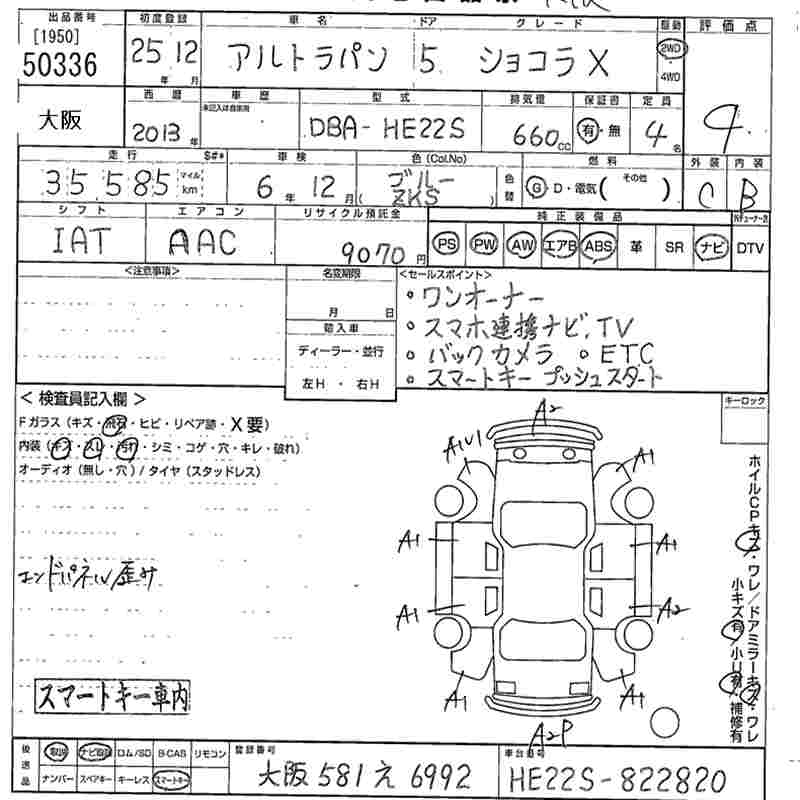 出品番号 初度登録 車名 ドア グレード 駆動 評価点
[1950]
50336 25年 12月 アルトラパン 5 ショコラX 2WD
4WD
西暦 車歴 型式 排気量 保証書 定員
大阪 2013年 未記入は自家用 DBA-HE22S 660cc 有・無 4名 4
走行 S#* 車検 色(Col.No) 燃料 外装 内装
35585 マイル km 6年 12月 ブルー 色替 G・D・電気( その他 ) C B
( ZKS )
シフト エアコン リサイクル預託金 純正装備品
IAT AAC 9070円 PS PW AW エアB ABS 革 SR ナビ DTV
<注意事項> 名変期限 <セールスポイント>
月 日
・ワンオーナー
輸入車
・スマホ連携ナビ,TV
ディーラー・並行
・バックカメラ ・ETC
左H ・ 右H
・スマートキープッシュスタート
<検査員記入欄> キーロック
Fガラス(キズ・飛石・ヒビ・リペア跡・X要)
内装(キズ・スレ・汚れ・シミ・コゲ・穴・キレ・破れ)
オーディオ(無し・穴)/タイヤ(スタッドレス)
A2
A1U1 A1
A1 A1
エンドパネル歪み
A1 A2
A1 A1
A2P
ホイルCPキズ・ワレ/ドアミラーキズ・ワレ
小キズ有/小U有/補修有
スマートキー車内
後送品 取説 ナビ取説 ロム/SD B-CAS リモコン 登録番号 車台番号
ナンバー スペアキー キーレス スマートキー 大阪 581 え 6992 HE22S-822820